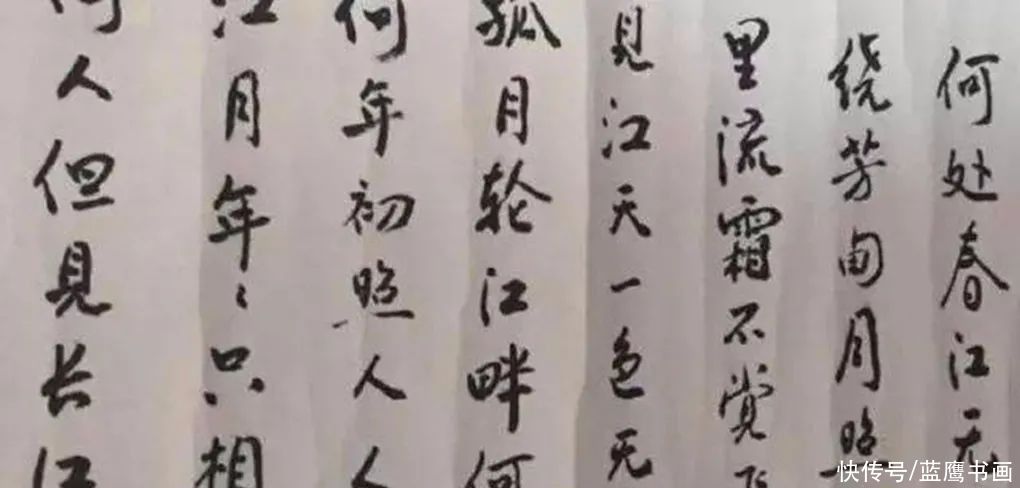 何处春江无
绕芳甸月照
里流霜不觉飞
见江天一色无
孤月轮江畔何
何年初照人人
江月年〻只相
何人但见长江
快传号/蓝鹰书画